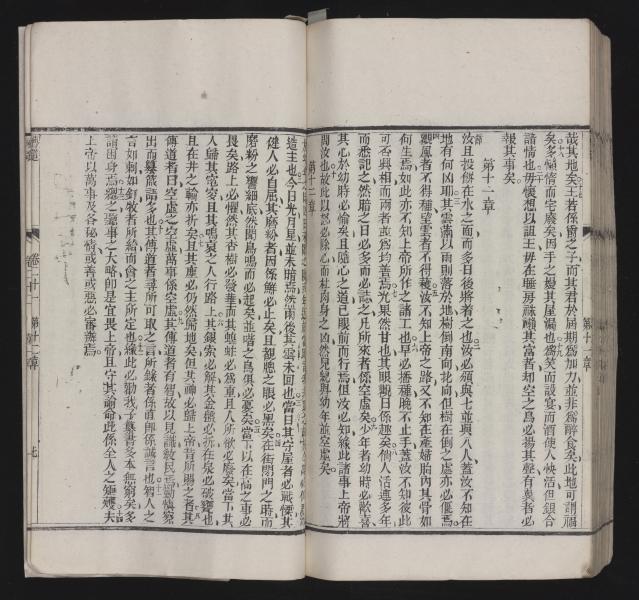 哉其地矣王若係爵之子而其君於屆期爲加力並非爲醉食矣此地可謂福
矣多懶惰而宅廢矣因手之嫚其屋漏也爲笑而設宴而酒使人快活但銀合
諸情也毋懷想以詛王毋在睡房詛其富者却空之鳥必揚其聲有翼者必
報其事矣
第十一章
汝且投餅在水之面而多日後將着之也汝必頒與七並與八人蓋汝不知在
地有何凶耶其雲滿以雨則落於地樹倒南向北向但樹在倒之處亦必偃焉
觀風者不得種望雲者不得穫汝不知上帝之路又不知在產婦胎內其骨如
何生焉如此亦不知上帝所作之諸工也早必播種晚不止手蓋汝不知彼此
可否興相而兩者或爲均善焉光果然甘也其眼觀日係趣矣倘人活連多年
而悉記之然暗之日多而必誌之凡所來者係空虛矣少年者幼時必歡喜
其心於幼時必愉矣且隨心之道已眼前而行焉但汝必知緣此諸事上帝將
問汝也故此以怒必除心而杜肉身之凶然兒與幼年並空虛矣
第十二章
這主也今日光月星並未暗焉然雨後其雲未回也當日其守屋者必戰慄其
健人必自屈其磨粉者因無解必止矣且觀牕之眼必黑矣在街閉門之時而
磨粉之聲細底然聞鳥鳴而必起矣並唱之鳥俱必憂矣當下以在高之事必
畏矣路上必懼然其杏樹必發華而其蝗蛙必爲重且人所欲必廢矣當下其
人歸其竟家且其喪之人行路上其銀索必解其金必折在泉必破也
且在井之輪亦折矣且其塵必仍然歸地矣但其神必歸上帝昔所賜之者其
傳道者曰空虛之空虛萬事係空虛其傳道者有智故以見識教民焉勤慎察
出而纂箴語多也其傳道者尋所可取之言所錄者係直即係誠言也智人之
言如刺如釘牧者所給而會之主所定也緣此必勸我子纂書多本無窮矣多
讀困身焉聽之事之大略即是宜畏上帝且守其諭命此係全人之矩矱夫
上帝以萬事及各秘情或善或惡必審焉
卷二十一 第十二章